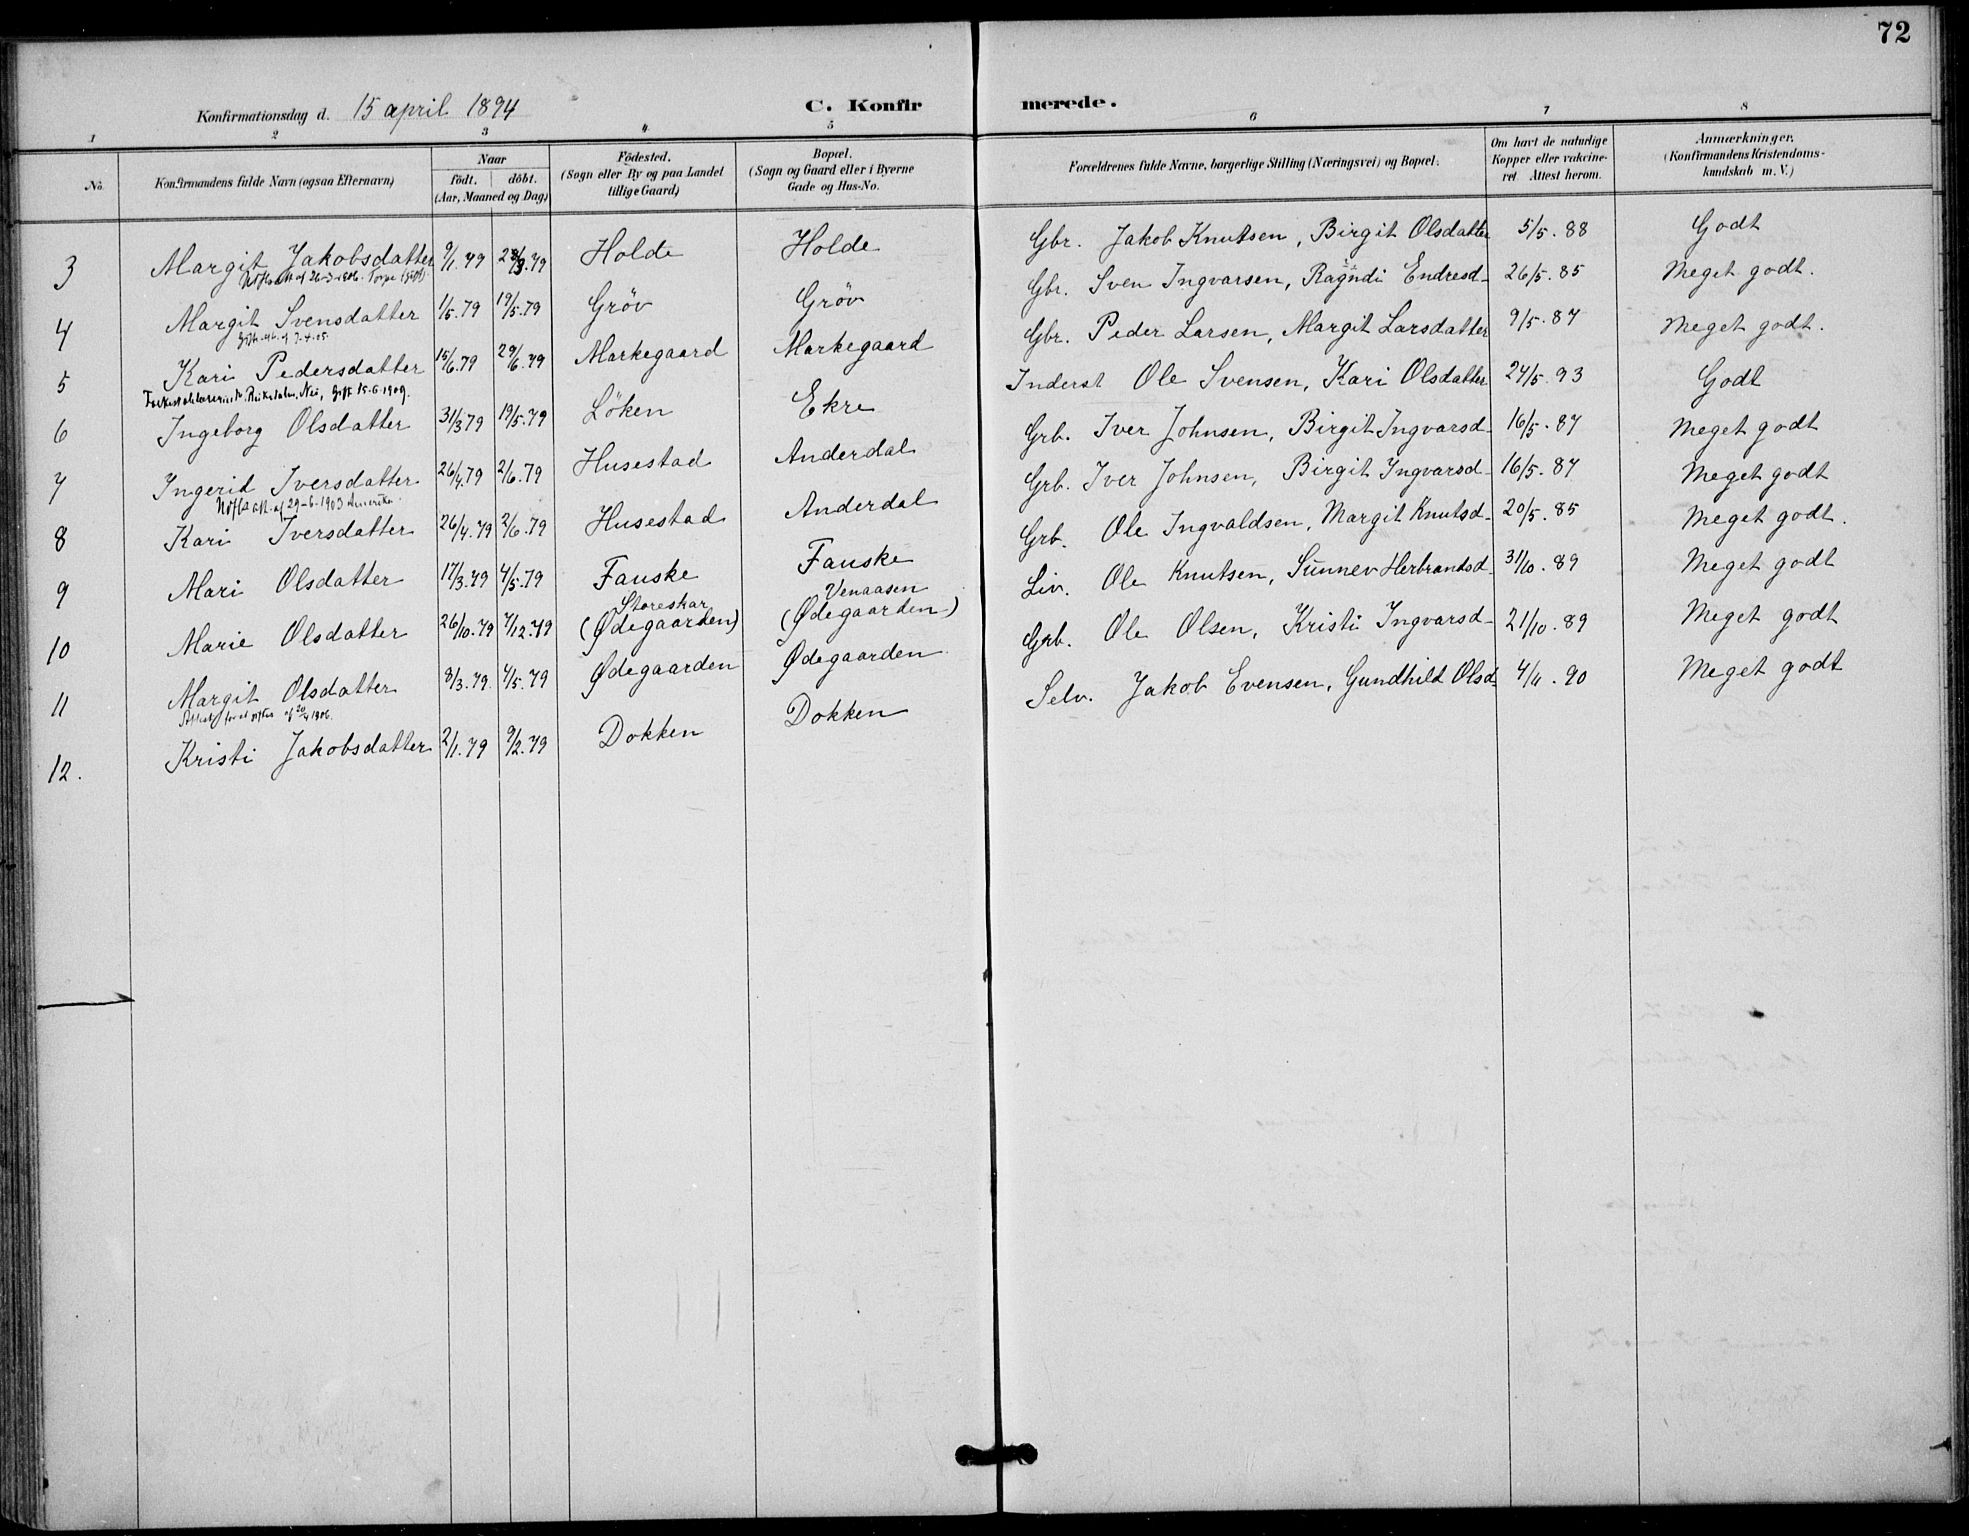 72
Konfirmationsdag d. 15 april 1894 C. Konfirmerede.
1 2 3 4 5 6 7 8
No. Konfirmandens fulde Navn (ogsaa Efternavn) Naar födt. döbt. (Aar, Maaned og Dag) Födested. (Sogn eller By og paa Landet tillige Gaard) Bopæl. (Sogn og Gaard eller i Byerne Gade og Hus-No. Forældrenes fulde Navne, borgerlige Stilling (Næringsvei) og Bopæl. Om havt de naturlige Kopper eller vakcineret. Attest herom. Anmærkninger. (Konfirmandens Kristendomskundskab m. V.)
3 Margit Jakobsdatter 9/1.79 23/3.79 Holde Holde Gbr. Jakob Knutsen, Birgit Olsdatter 5/5.88 Godt
af 26-3-1906. Torpe (gift)
4 Margit Svensdatter 1/5.79 19/5.79 Gröv Gröv Gbr. Sven Ingvarsen, Ragndi Endresd. 26/5.85 Meget godt.
af 3-4-05.
5 Kari Pedersdatter 15/6.79 29/6.79 Markegaard Markegaard Gbr. Peder Larsen, Margit Larsdatter 9/5.87 Meget godt.
Nei, gift 15-6-1909.
6 Ingeborg Olsdatter 31/3 79 19/5.79 Löken Ekre Inderst Ole Svensen, Kari Olsdatter 24/5.93 Godt
7 Ingerid Iversdatter 26/4.79 2/6.79 Husestad Anderdal Grb. Iver Johnsen, Birgit Ingvarsd. 16/5.87 Meget godt
att. af 29-6-1903 Amerika.
8 Kari Iversdatter 26/4.79 2/6.79 Husestad Anderdal Grb. Iver Johnsen, Birgit Ingvarsd. 16/5.87 Meget godt
9 Mari Olsdatter 17/3.79 4/5.79 Fauske Fauske Grb. Ole Ingvaldsen, Margit Knutsd. 20/5.85 Meget godt.
Storeskar Venaasen
10 Marie Olsdatter 26/10.79 7/12.79 (Ødegaarden) (Ødegaarden) Liv. Ole Knutsen, Sunnev Herbrandsd. 31/10.89 Meget godt
11 Margit Olsdatter 8/3.79. 4/5.79 Ødegaarden Ødegaarden Grb. Ole Olsen, Kristi Ingvarsd. 21/10.89 Meget godt
af 20/4 1906.
12. Kristi Jakobsdatter 2/1.79 9/2.79 Dokken Dokken Selv. Jakob Evensen, Gundhild Olsd. 4/11.90 Meget godt